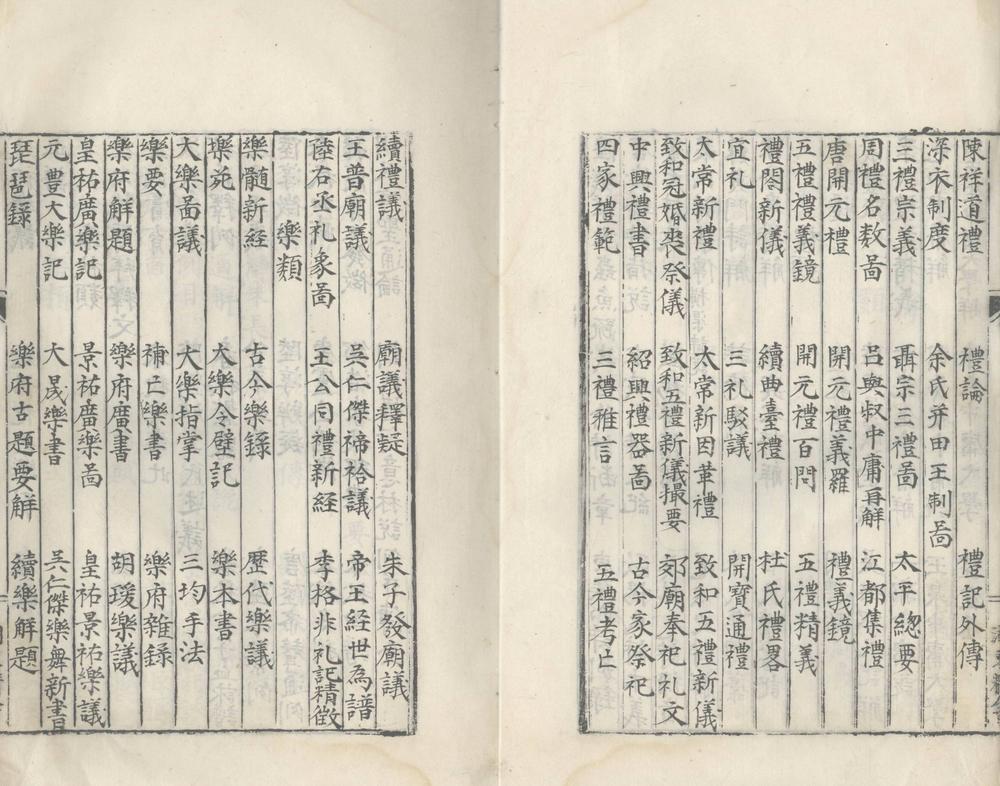 陳祥道禮 禮論 禮記外傳
深衣制度 余氏井田王制啚
三禮宗義 聶宗三禮啚 太平總要
周禮名数啚 吕與叔中庸再解 江都集禮
唐開元禮 開元禮義羅 禮義鏡
五禮禮義鏡 開元禮百問 五禮精義
禮閣新儀 續曲臺禮 杜氏禮畧
宜礼 三礼駁議 開寶通禮
太常新禮 太常新因革禮 致和五禮新儀
致和冠婚丧祭儀 致和五禮新儀撮要 郊廟奉祀礼文
中興禮書 紹興禮器啚 古今家祭祀
四家禮範 三禮雅言 五禮考亡
續禮議 廟議釋疑 朱子發廟議
王普廟議 吳仁傑禘祫議 帝王經世為譜
陸右丞礼象啚 王公司禮新経 李格非礼記精微
樂類
樂髓新經 古今樂錄 歷代樂議
樂苑 大樂令壁記 樂本書
大樂啚議 大樂指掌 三均手法
樂要 補亡樂書 樂府雜錄
樂府解題 樂府廣書 胡瑗樂議
皇祐廣樂記 景祐廣樂啚 皇祐景祐樂議
元豊大樂記 大晟樂書 吳仁傑樂舞新書
琵琶錄 樂府古題要解 續樂解題